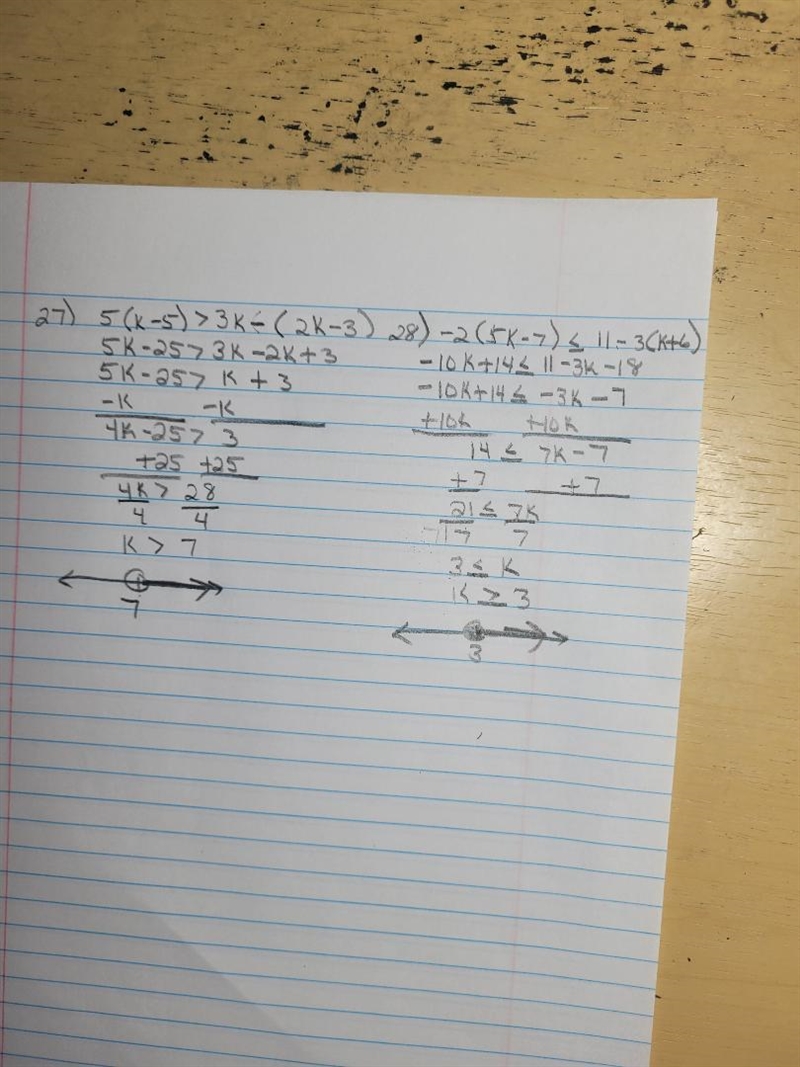 27) 5(K-5) > 3K - (2K-3)
5K-25 > 3K-2K+3
5K-25 > K + 3
-K -K
4K-25 > 3
+25 +25
4K > 28
4 4
K > 7
7
28) -2(5K-7) ≤ 11-3(K+6)
-10K+14 ≤ 11-3K-18
-10K+14 ≤ -3K-7
+10K +10K
14 ≤ 7K-7
+7 +7
21 ≤ 7K
7 7
3 ≤ K
K ≥ 3
3